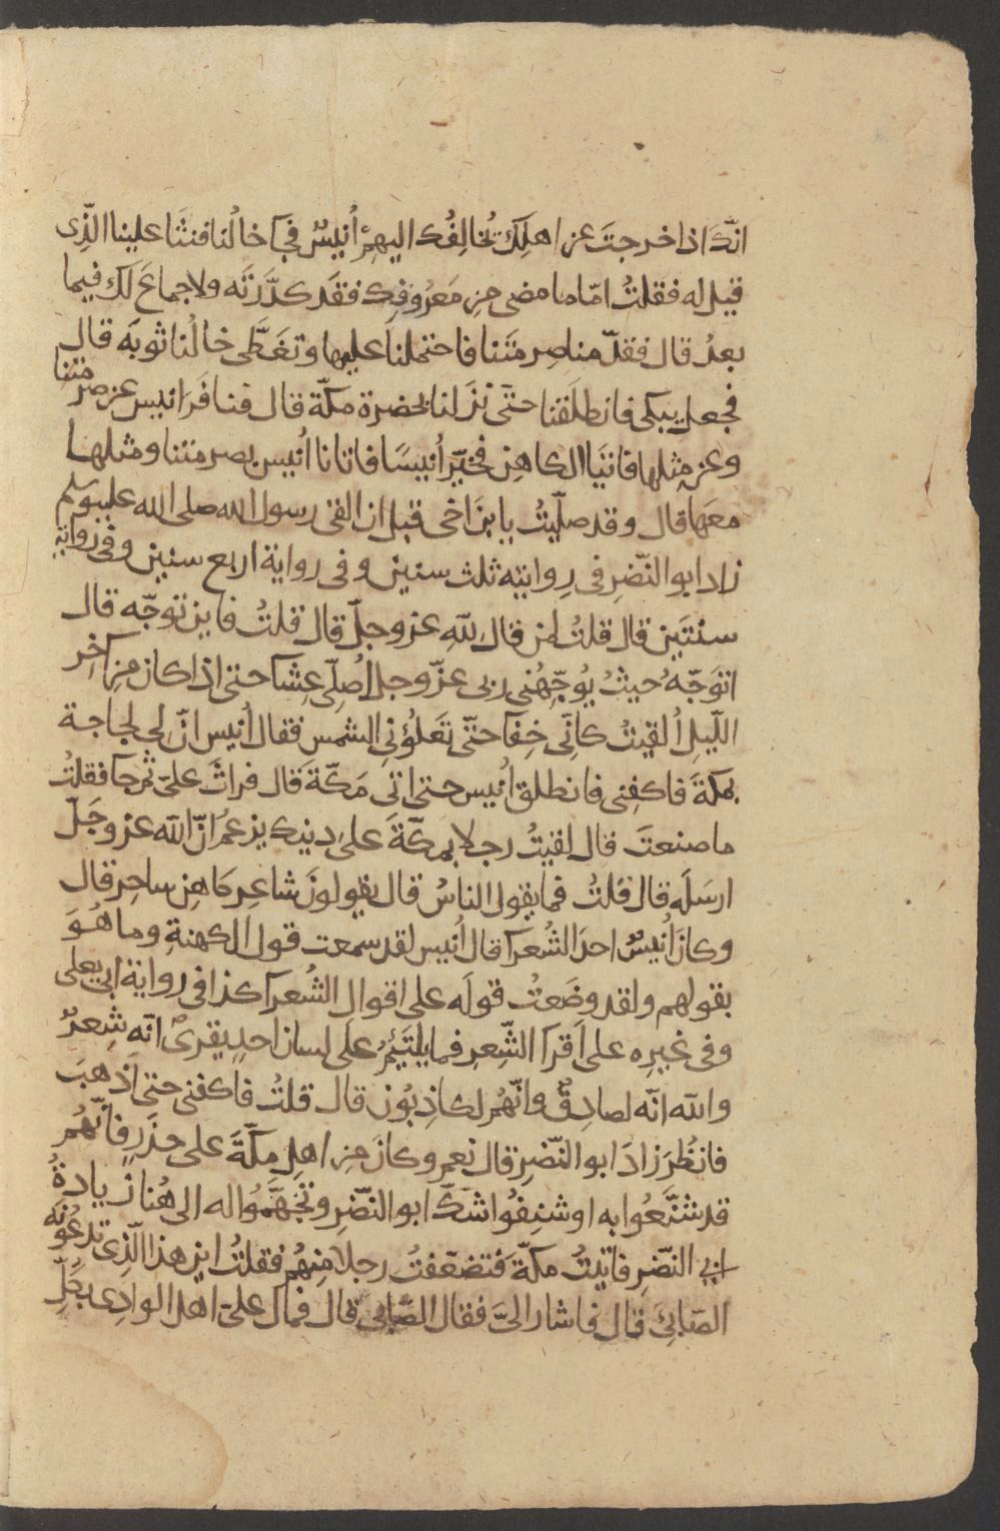 انّك اذا خرجتَ عن اهلِكَ تُخالِفُك اليهِمْ اُنيسٌ فجآ خالُنا فنثَا علينا الّذِى
قيل له فقلتُ امّا ما مضى مِن مَعرُوفِك فقَد كدَّرتَه ولا جماعَ لك فيما
بعدُ قال فقدّمنا صِرمَتَنا فاحتملنا عليها وتغَطَّى خالُنا ثوبَه قال
فجعل يبكى فانطلَقنا حتّى نزَلنا بحضرة مكّة قال فنافَرَ انيس عن صِرمتنا
وعن مثلها فاتيَا الكاهِن فخيّر اُنيسًا فاتانا اُنيس بصرمتنا ومثلها
معَها قال وقد صلّيتُ يا بنَ اخى قبل ان القى رسول الله صلى الله عليه وسلم
زاد ابو النّضرِ فى رِوايتِه ثلث سنين وفى رواية اربع سنين وفى رواية
سنتَين قال قلتُ لمن قال للهِ عز وجلّ قال قلتُ فاين توجّه قال
اتوَجّهُ حيثُ يُوجِّهُنى ربى عزّ وجل اُصلّى عِشا حتى اذا كان مِن آخِر
اللّيلِ اُلقيتُ كانّى خِفآ حتّى تَعلُوَنى الشمس فقال اُنيس انّ لى لحاجة
بمكةَ فاكفِنى فانطلق اُنيس حتى اتى مَكّةَ قال فراثَ علىّ ثم جا فقلتُ
ما صنعتَ قال لقيتُ رجلا بمكّةَ على دِينِك يزعمُ انّ الله عز وجَلّ
ارسَلَه قال قلتُ فما يقول الناسُ قال يقولونَ شاعِر كاهِن ساحِر قال
وكانَ اُنيسٌ احدَ الشُعرآ قال اُنيس لقد سمعت قول الكهنةِ وما هُوَ
بقولهم ولقد وضَعتُ قولَه على اقوالِ الشُعرآ كذا فى رواية ابى يعلى
وفى غيرِه على اَقرا الشِّعرِ فما يلتَئِمُ على لسان احدٍ يقرىٌ انّه شِعرٌ
والله انّه لصادِقٌ وانّهُم لكاذِبُون قال قلتُ فاكفنى حتى اَذهبَ
فانظُرَ زادَ ابو النّضرِ قال نعم وكانَ مِن اهلِ مكّةَ على حذَرٍ فانّهُم
قد شَنَّعُوا به او شنِفُوا شكّ ابو النّضرِ وتجَهَّمُوا له الى هُنا زيادةُ
ابى النّضرِ فاتيتُ مكّةَ فتضعّفتُ رجلا مِنهُم فقلتُ اين هذا الّذِى تدعُونَه
الصّابِئَ قال فاشارَ الىّ فقال الصّابِى قال فمال علىّ اهل الوادِى بكُلِّ